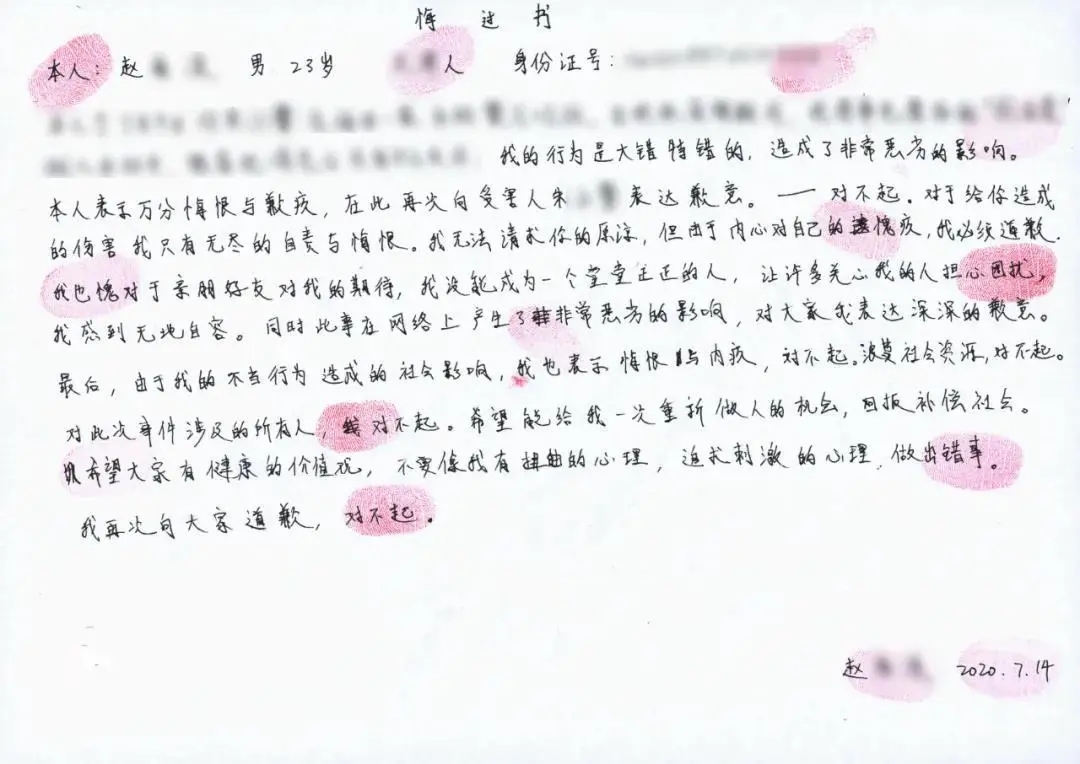 悔过书
本人：赵 男 23岁 人 身份证号：
我的行为是大错特错的，造成了非常恶劣的影响。
本人表示万分悔恨与歉疚，在此再次向受害人朱 表达歉意。——对不起。对于给你造成
的伤害我只有无尽的自责与悔恨。我无法请求你的原谅，但由于内心对自己的愧疚，我必须道歉.
我也愧对于亲朋好友对我的期待，我没能成为一个堂堂正正的人，让许多关心我的人担心困扰，
我感到无地自容。同时此事在网络上产生了非常恶劣的影响，对大家我表达深深的歉意。
最后，由于我的不当行为造成的社会影响，我也表示悔恨与内疚，对不起。浪莫社会资源，对不起。
对此次事件涉及的所有人，对不起。希望能给我一次重新做人的机会，回报补偿社会。
希望大家有健康的价值观，不要像我有扭曲的心理，追求刺激的心理，做出错事。
我再次向大家道歉，对不起。
赵 2020.7.14